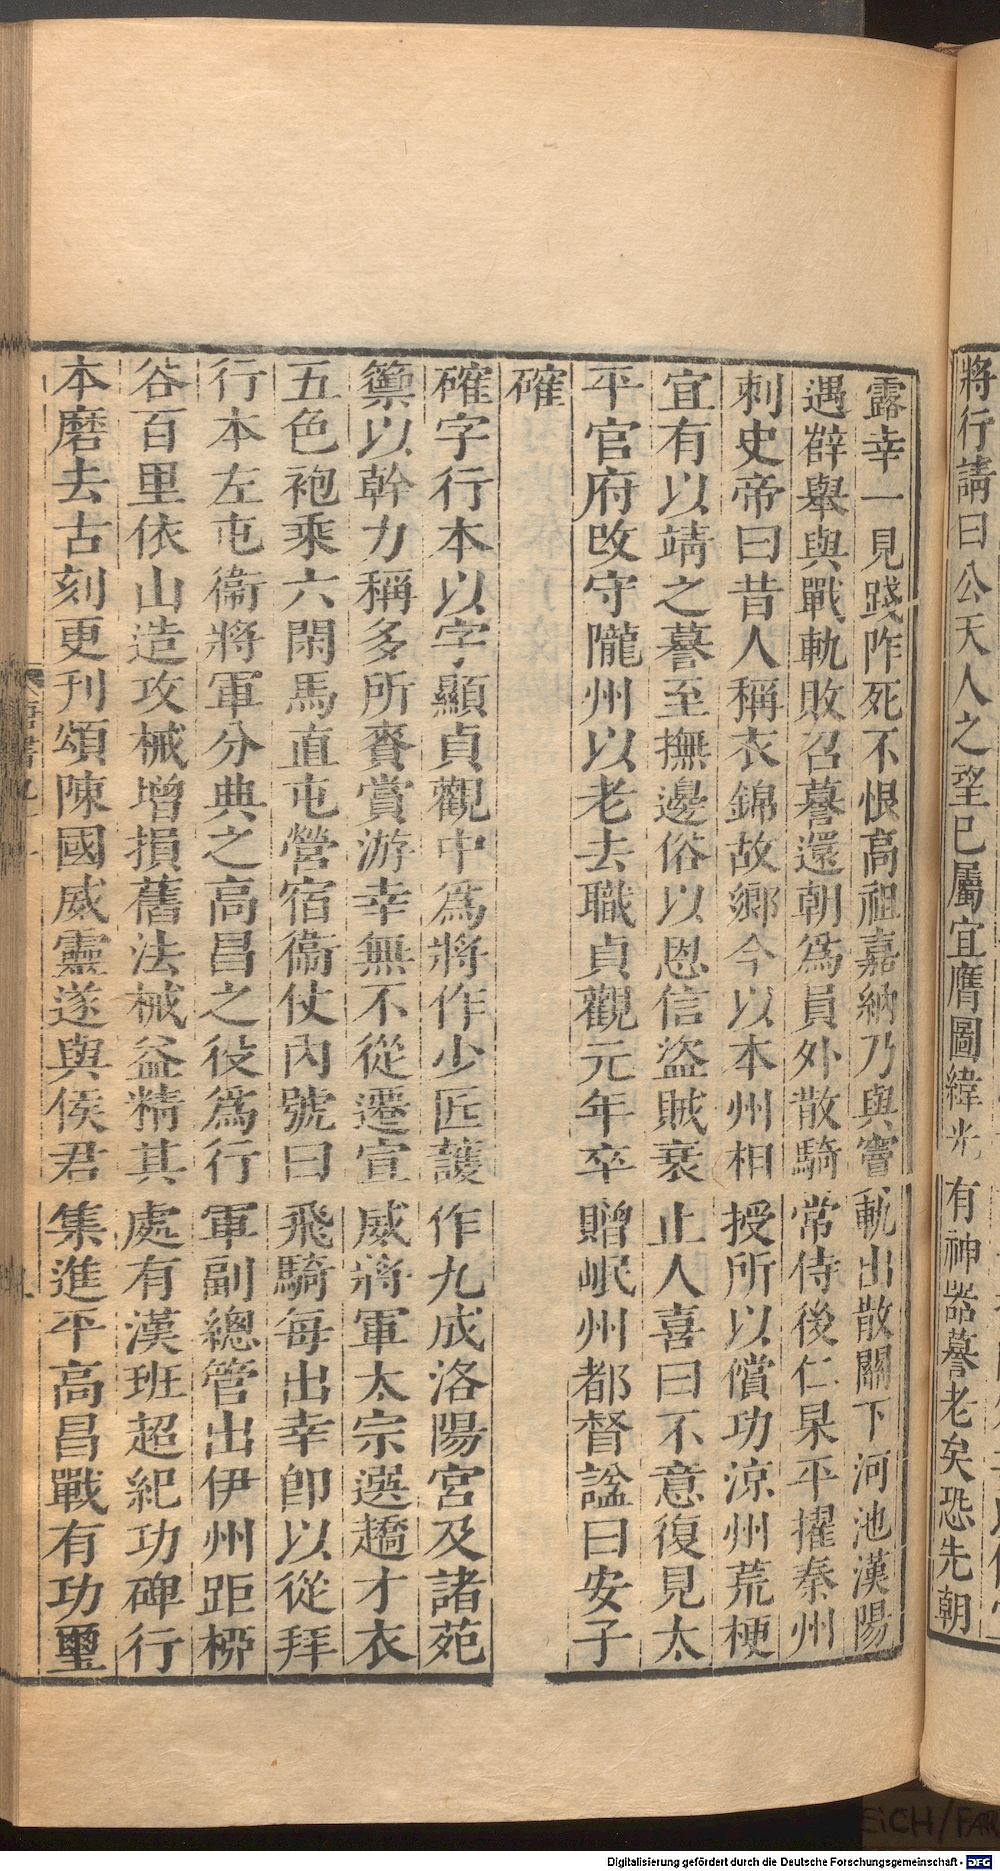 將行請曰公天人之望已屬宜膺圖緯光有神器謩老矣恐先朝
露幸一見踐阼死不恨高祖嘉納乃與竇軌出散關下河池漢陽
遇薛舉與戰軌敗召謩還朝爲員外散騎常侍後仁杲平擢秦州
刺史帝曰昔人稱衣錦故鄉今以本州相授所以償功涼州荒梗
宜有以靖之謩至撫邊俗以恩信盜賊衰止人喜曰不意復見太
平官府改守隴州以老去職貞觀元年卒贈岷州都督諡曰安子
確
確字行本以字顯貞觀中爲將作少匠護作九成洛陽宮及諸苑
籞以幹力稱多所賚賞游幸無不從遷宣威將軍太宗選趫才衣
五色袍乘六閑馬直屯營宿衞仗內號曰飛騎每出幸卽以從拜
行本左屯衞將軍分典之高昌之役爲行軍副總管出伊州距桺
谷百里依山造攻械增損舊法械益精其處有漢班超紀功碑行
本磨去古刻更刊頌陳國威靈遂與侯君集進平高昌戰有功璽
Digitalisierung gefördert durch die Deutsche Forschungsgemeinschaft - DFG